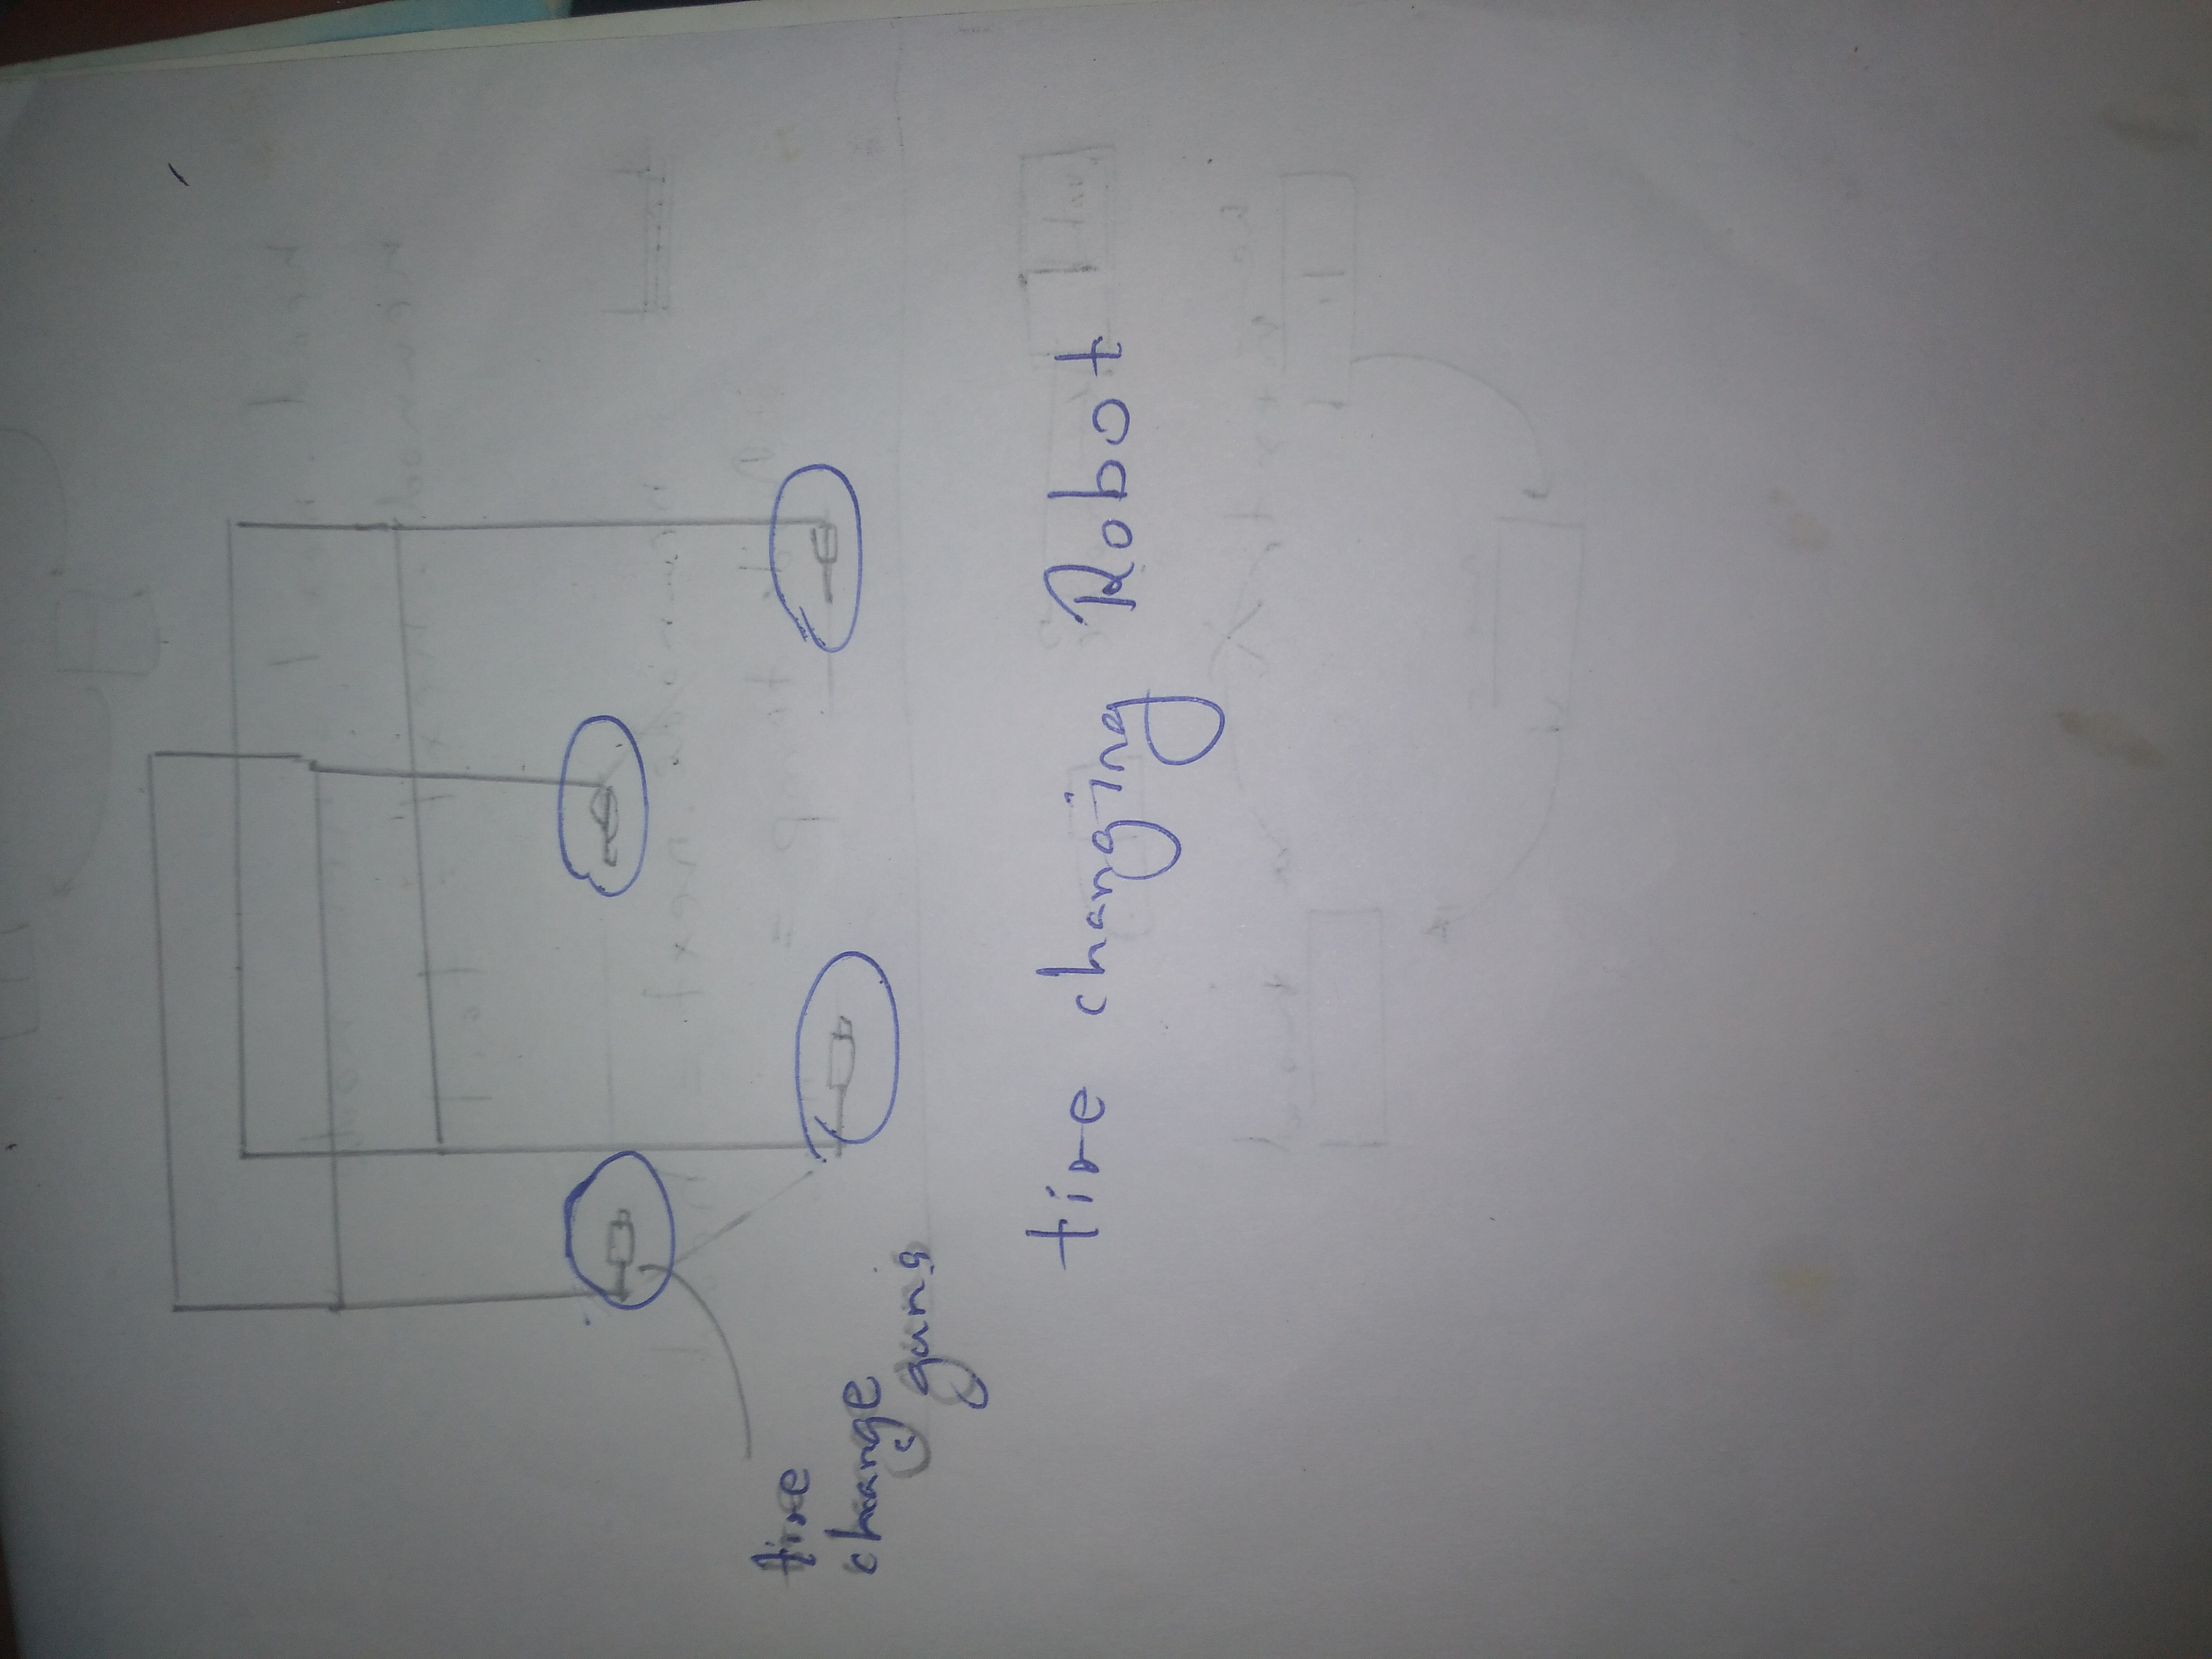 tire
change
guns
tire changing Robot